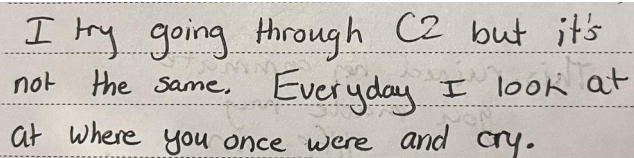 I try going through C2 but it's
not the same. Everyday I look at
at where you once were and cry.